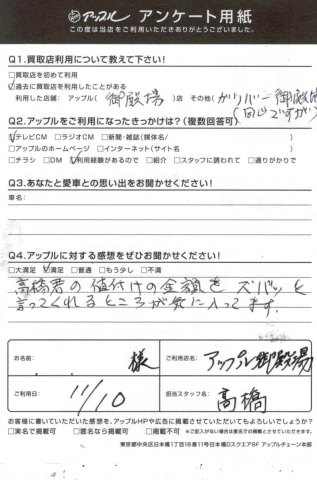 アップル アンケート用紙
この度は当店をご利用いただきありがとうございました。
Q1.買取店利用について教えて下さい!
□買取店を初めて利用
☑過去に買取店を利用したことがある
利用した店舗: アップル( 御殿場 )店 その他( ガリバー御殿場
(同じですが)
Q2.アップルをご利用になったきっかけは?(複数回答可)
☑テレビCM □ラジオCM □新聞・雑誌(媒体名/ )
□アップルのホームページ □インターネット(サイト名 )
□チラシ □DM ☑利用経験があるので □紹介 □スタッフに誘われて □通りがかりで
Q3.あなたと愛車との思い出をお聞かせください!
車名:
Q4.アップルに対する感想をぜひお聞かせください!
□大満足 ☑満足 □普通 □もう少し □不満
高橋君の値付けの金額をズバッと
言ってくれるところが気に入ってます。
お名前: 様
ご利用店名: アップル御殿場
ご利用日: 11/10
担当スタッフ名: 高橋
お客様に書いていただいた感想を、アップルHPや広告に掲載させていただいてもよろしいでしょうか?
□実名で掲載可 □匿名なら掲載可 □掲載不可 ※ご記入がない場合は匿名での掲載とさせていただきます。
東京都中央区日本橋1丁目16番11号日本橋Dスクエア9F アップルチェーン本部